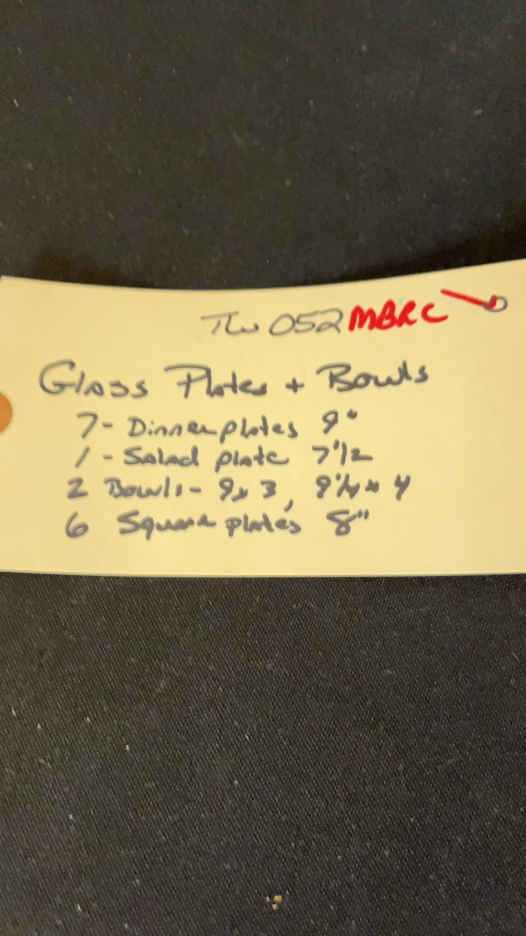 TW 052 MBRC
Glass Plates + Bowls
7- Dinner plates 9"
1 - Salad plate 7 1/2
2 Bowls - 9 x 3, 9 1/4 x 4
6 Square plates 8"